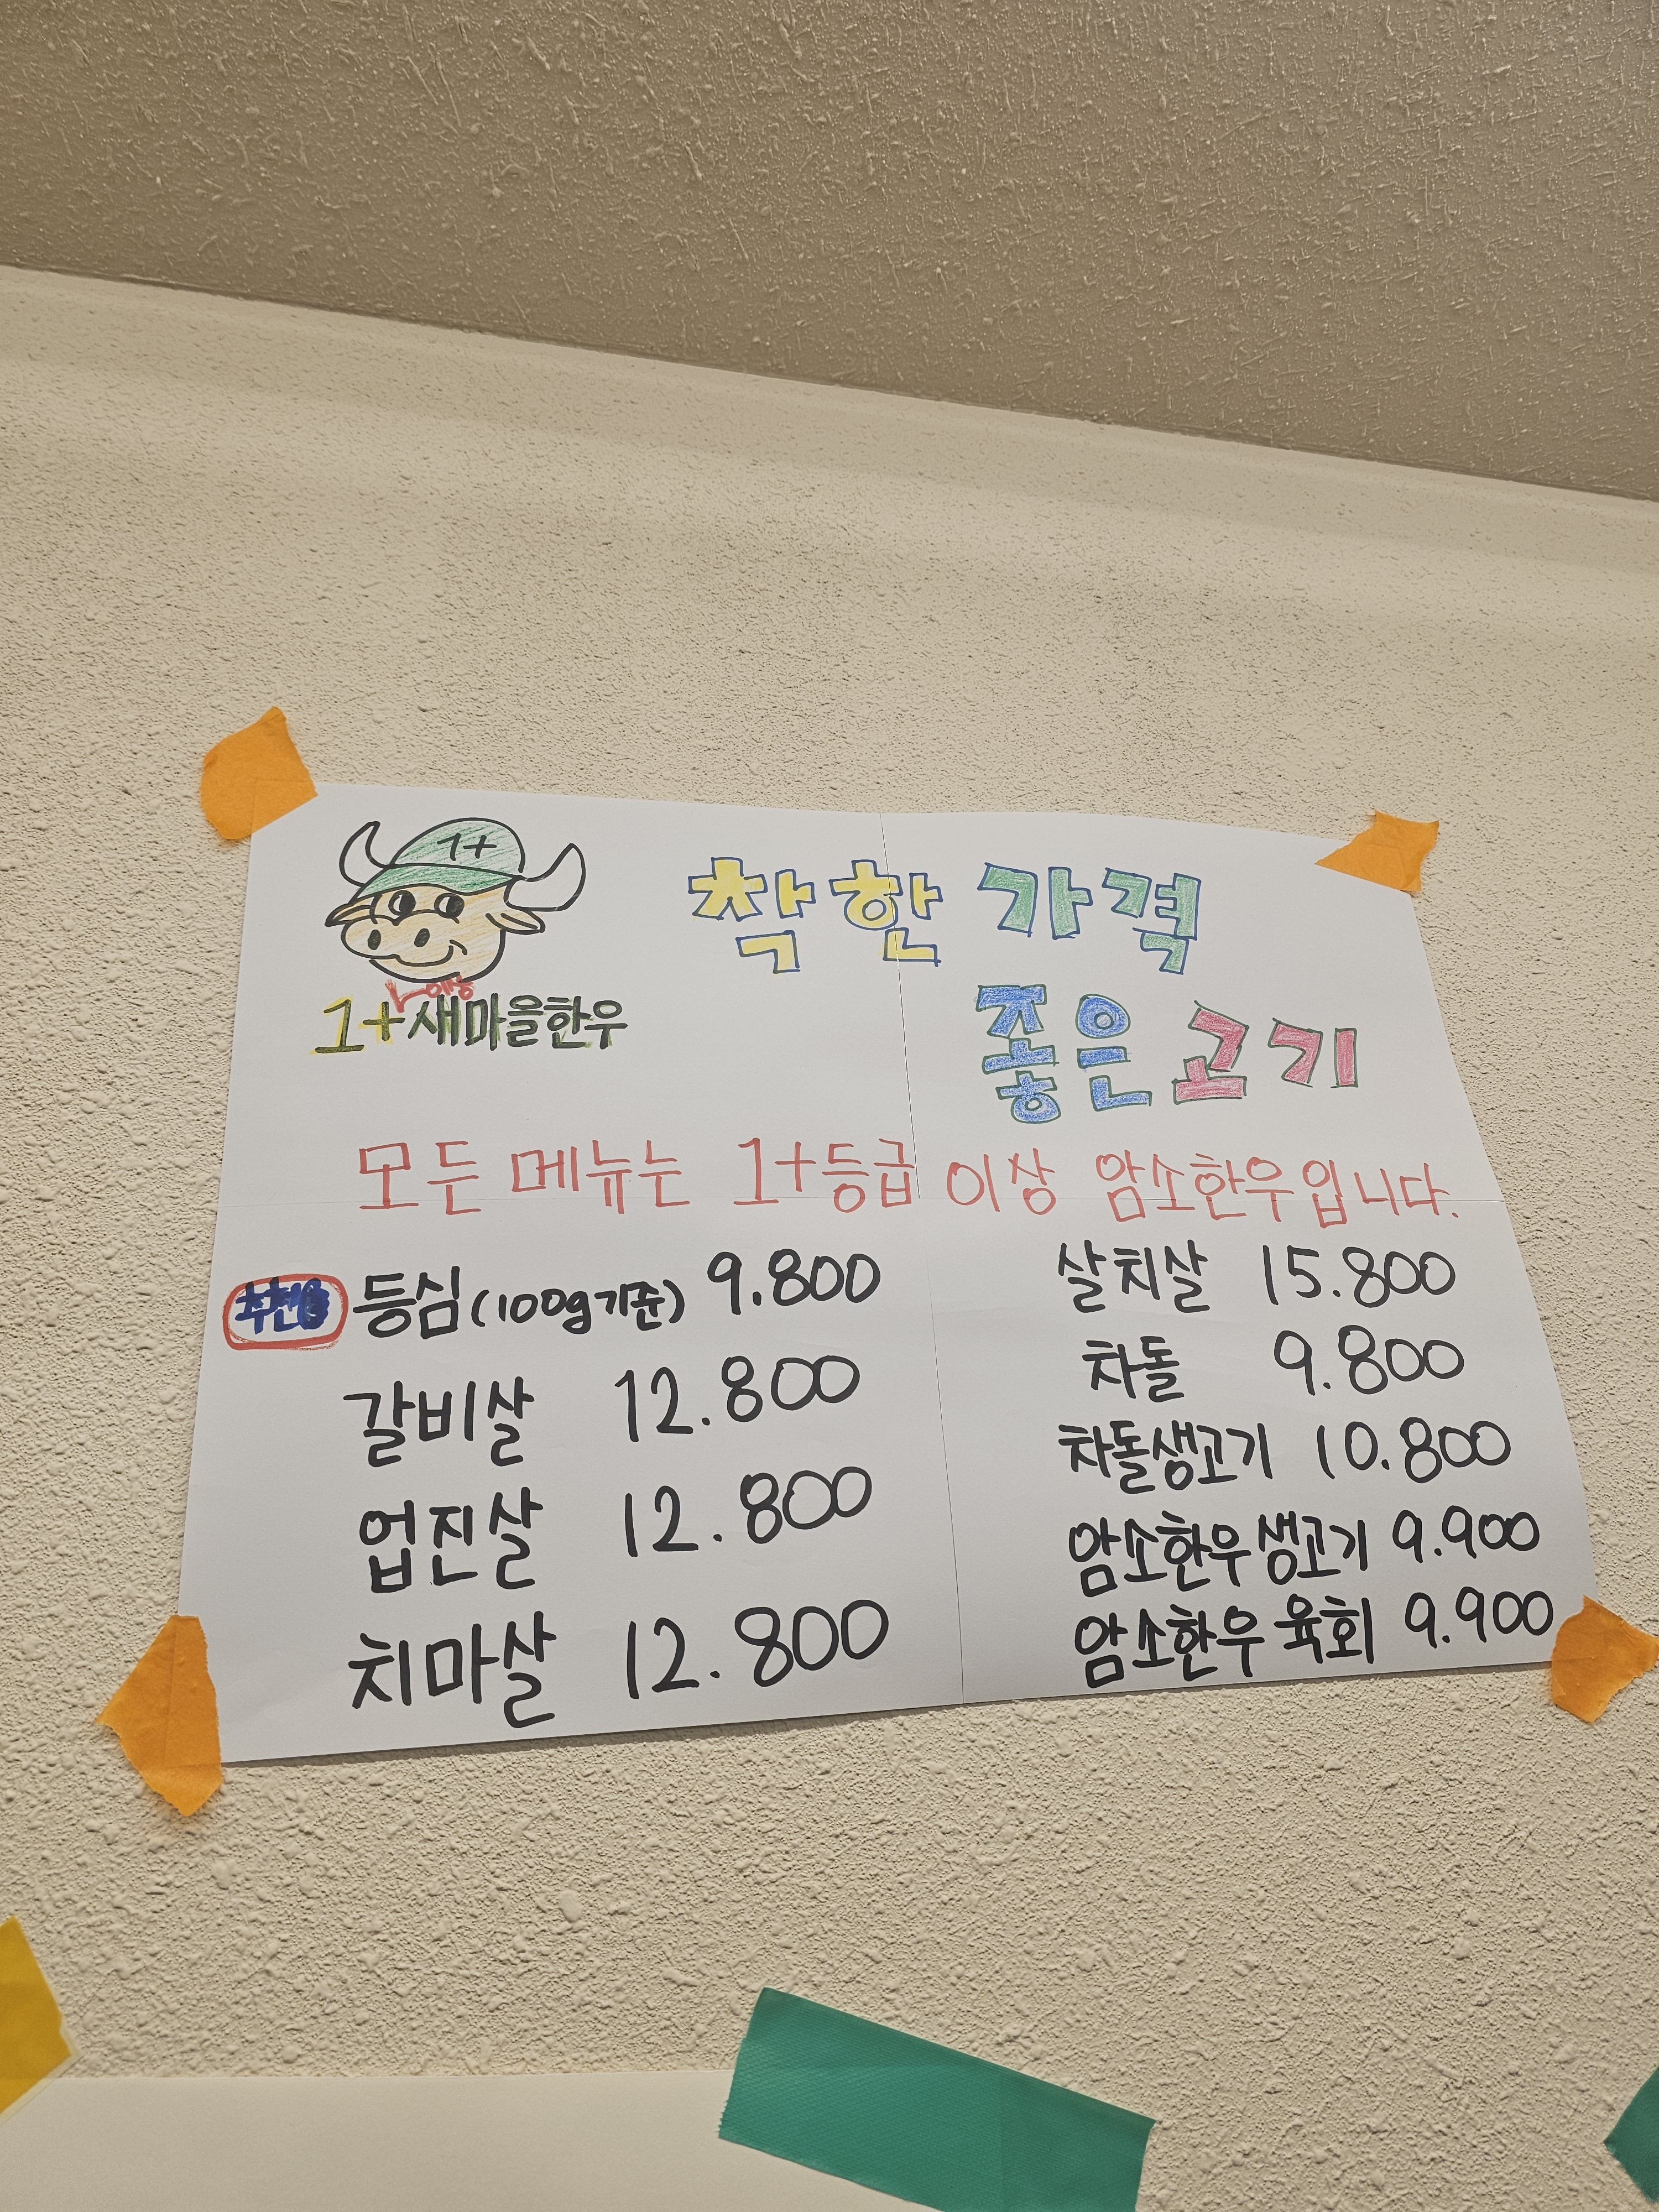 1+
착한 가격
좋은 고기
1+ 새마을한우
모든 메뉴는 1+등급 이상 암소한우입니다.
등심(100g기준) 9.800
갈비살 12.800
업진살 12.800
치마살 12.800
살치살 15.800
차돌 9.800
차돌생고기 10.800
암소한우생고기 9.900
암소한우 육회 9.900